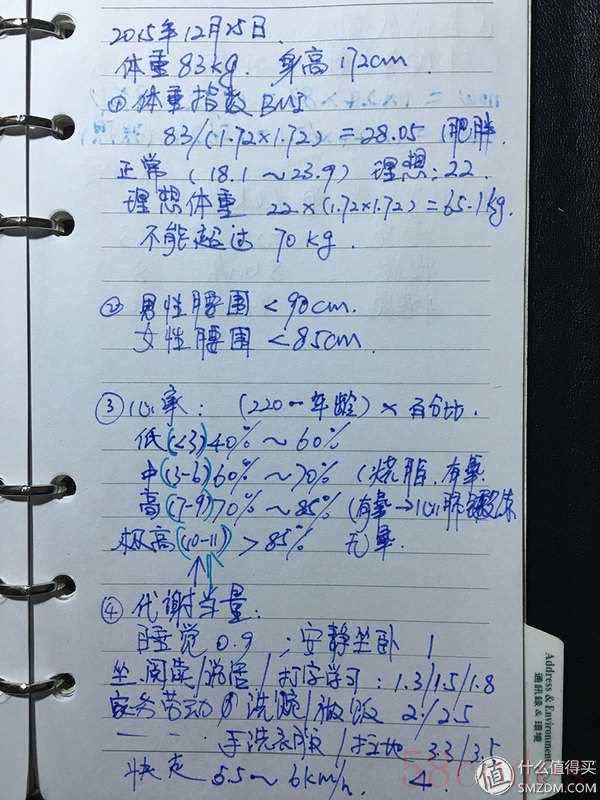 2015年12月25日.
体重83kg. 身高172cm.
① 体重指数 BMI
83/(1.72×1.72)=28.05 (肥胖.
正常 (18.1~23.9) 理想:22.
理想体重 22×(1.72×1.72)=65.1kg.
不能超过 70kg.
② 男性腰围 <90cm.
女性腰围 <85cm.
③ 心率: (220-年龄)×百分比.
低(<3)40%~60%
中(3-6)60%~70% (烧脂.有氧.
高(7-9)70%~85% (有氧→心肺锻炼
极高(10-11) >85% 无氧.
④ 代谢当量:
睡觉 0.9 ; 安静坐卧 1
坐.阅读/说话/打字学习: 1.3/1.5/1.8
家务劳动 洗碗/做饭 2/2.5
一 一 手洗衣服/拉地 3.3/3.5
快走 5.5~6km/h. 4
Address & Environment
通訊錄 & 環境
值 什么值得买
SMZDM.COM